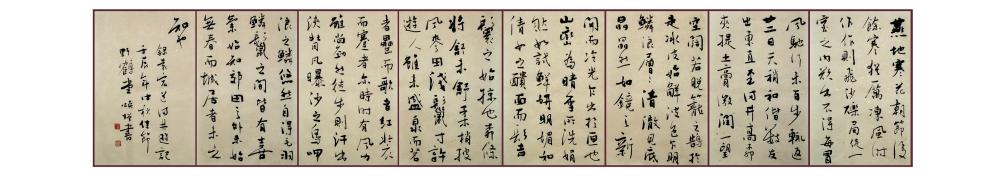 燕地寒花朝節後
餘寒猶厲凍風時
作作則飛沙礫局促一
室之內欲出不得每冒
風馳行未百步輒返
廿二日天稍和偕數友
出東直至滿井高柳
夾提土膏微潤一望
空闊若脫籠之鵠於
是冰皮始解波色乍明
鱗浪層層清澈見底
晶晶然如鏡之新
開而冷光乍出於匣也
山巒為晴雪所洗娟
然如拭鮮妍明媚如
倩女之靧面而髻
鬟之始掠也柳條
將舒未舒柔梢披
風麥田淺鬣寸許
遊人雖未盛泉而茗
者罍而歌者紅裝
而蹇者亦時時有風力
雖尚勁然徒步則汗出
浹背凡曝沙之鳥呷
浪之鱗悠然自得毛羽
鱗鬣之間皆有喜
氣始知郊田之外未始
無春而城居者未之
知也
錄袁宏道滿井遊記
壬辰年仲秋佳節
野鶴堂書